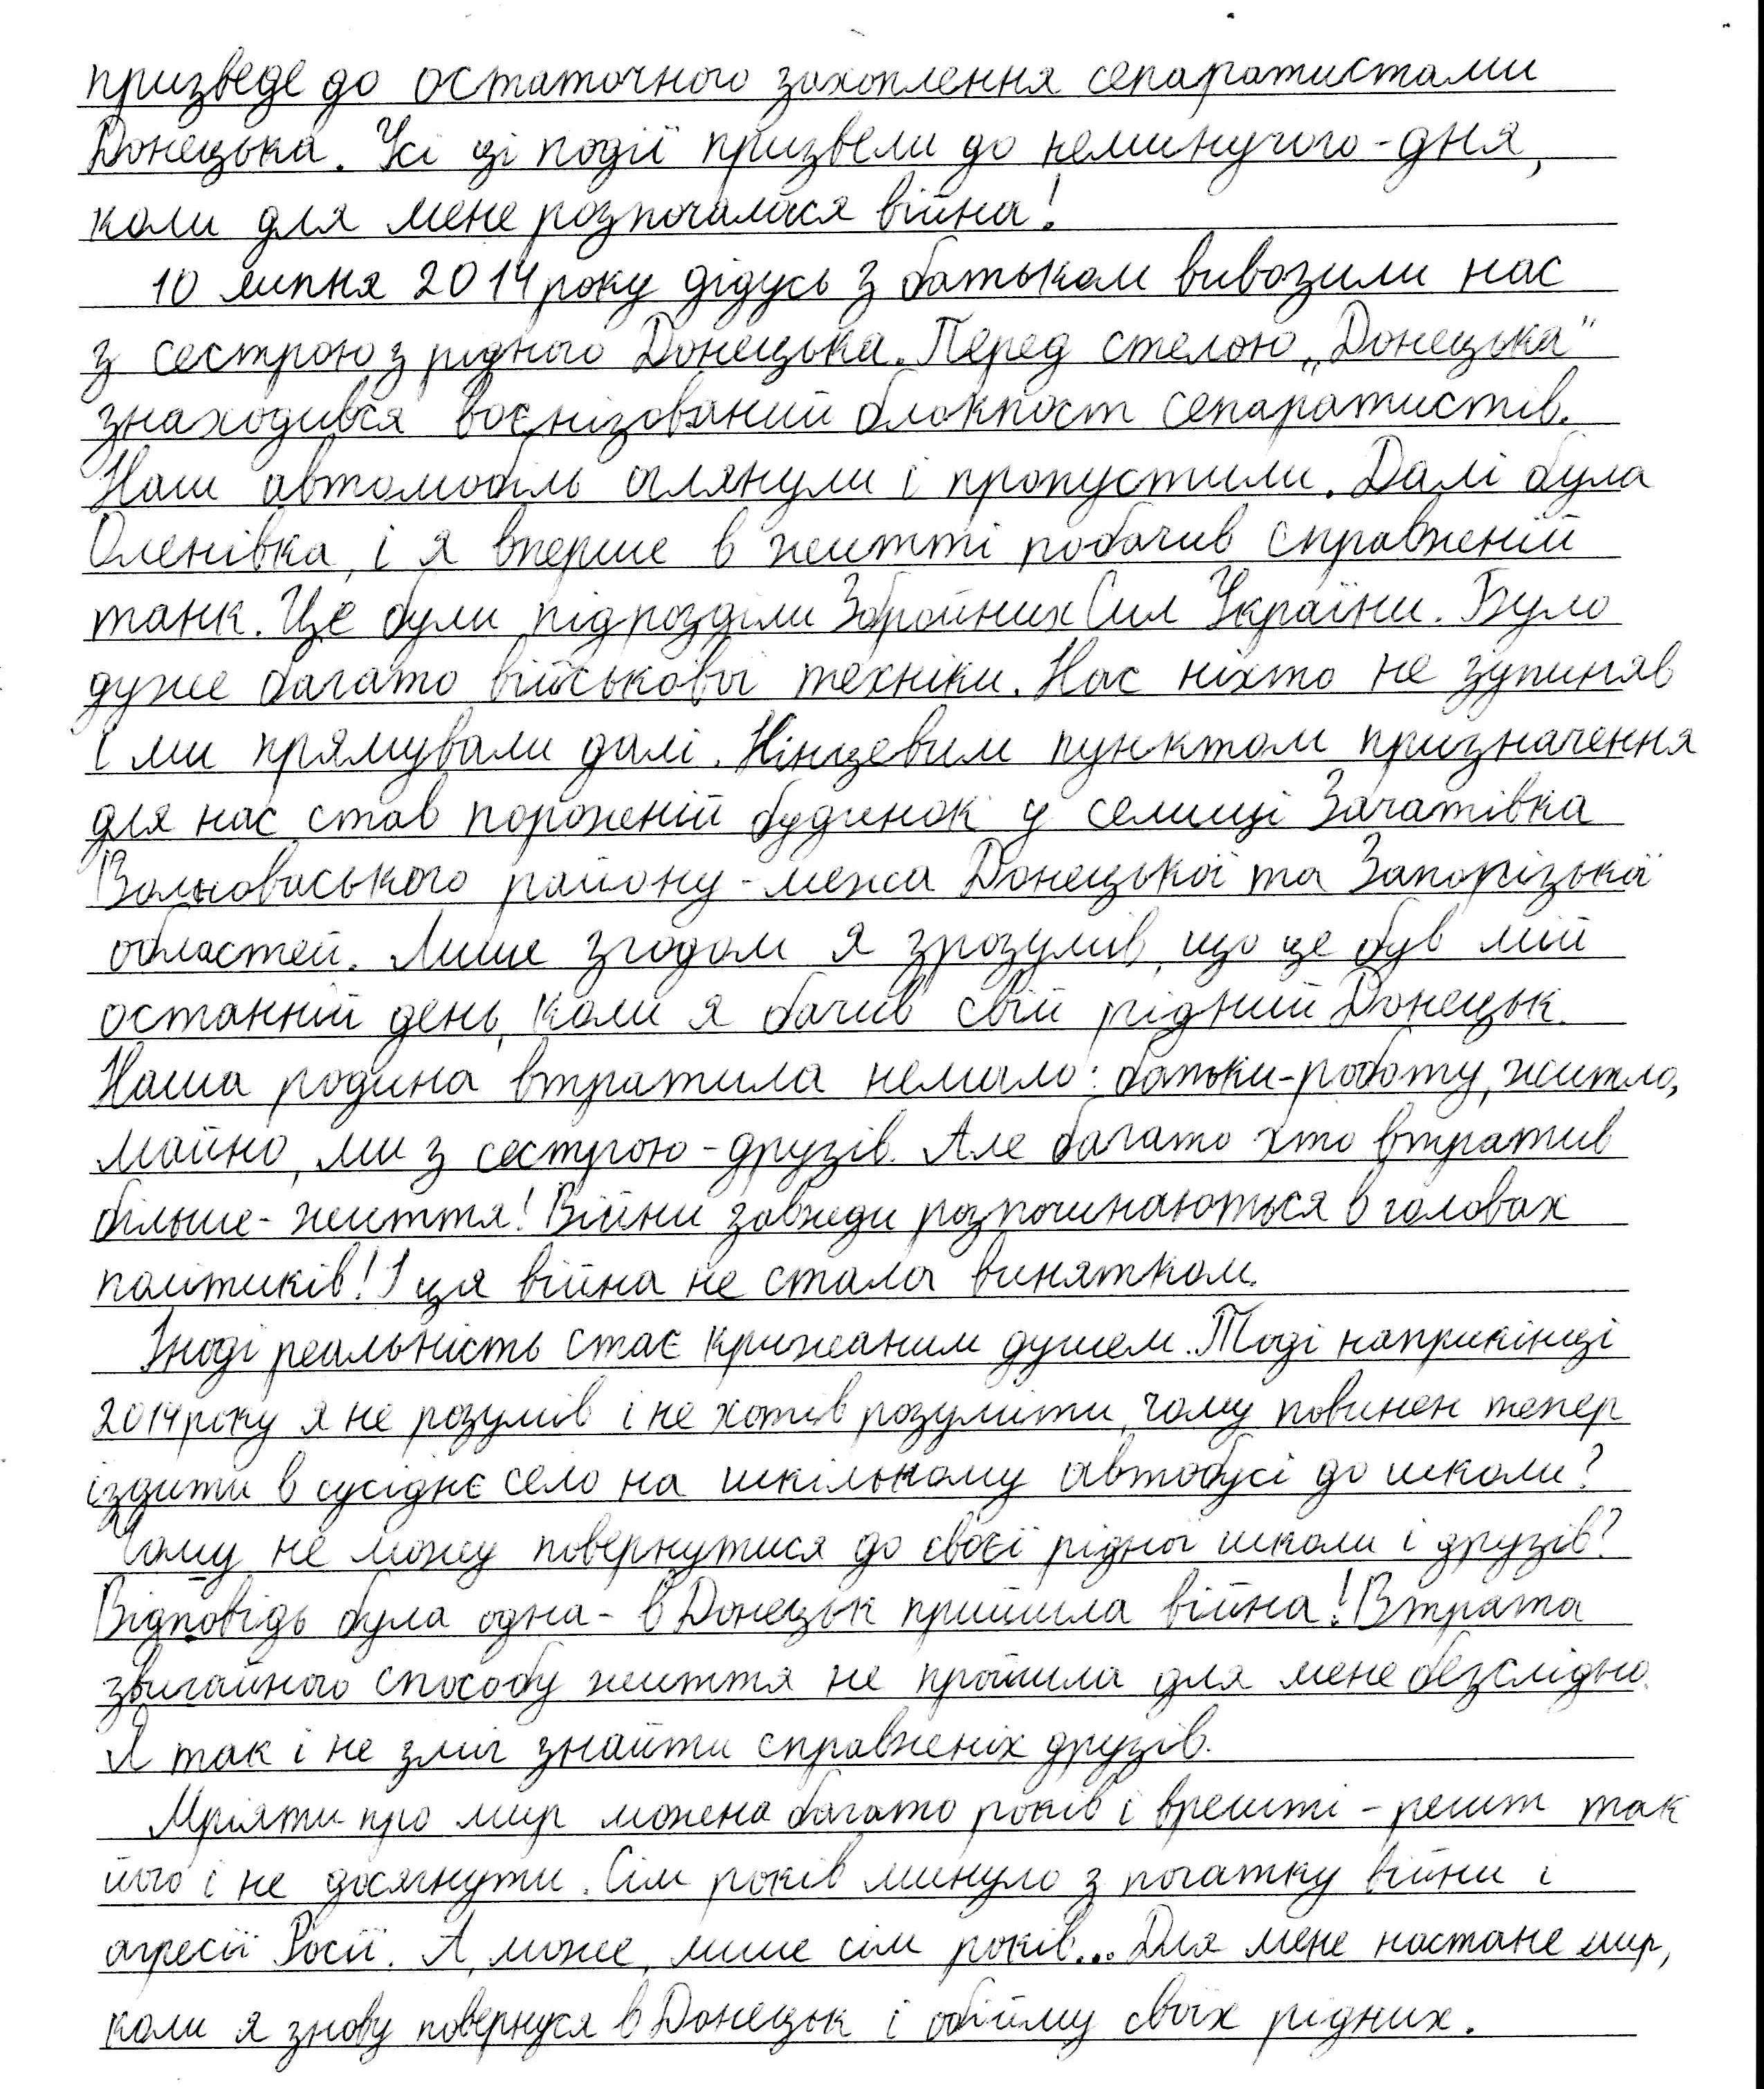 призведе до остаточного захоплення сепаратистами
Донецька. Усі ці події призвели до неминучого-дня,
коли для мене розпочалася війна!
10 липня 2014 року дідусь з батьком вивозили нас
з сестрою з рідного Донецька. Перед стелою „Донецька"
знаходився воєнізований блокпост сепаратистів.
Наш автомобіль оглянули і пропустили. Далі була
Оленівка, і я вперше в житті побачив справжній
танк. Це були підрозділи Збройних Сил України. Було
дуже багато військової техніки. Нас ніхто не зупиняв
і ми прямували далі. Кінцевим пунктом призначення
для нас став порожній будинок у селищі Зачатівка
Волноваського району - межа Донецької та Запорізької
областей. Лише згодом я зрозумів, що це був мій
останній день, коли я бачив свій рідний Донецьк.
Наша родина втратила немало: батьки-роботу, житло,
майно, ми з сестрою-друзів. Але багато хто втратив
більше - життя! Війни завжди розпочинаються в головах
політиків! І ця війна не стала винятком.
Іноді реальність стає крижаним душем. Тоді наприкінці
2014 року я не розумів і не хотів розуміти, чому повинен тепер
їздити в сусіднє село на шкільному автобусі до школи?
Чому не можу повернутися до своєї рідної школи і друзів?
Відповідь була одна - в Донецьк прийшла війна! Втрата
звичайного способу життя не пройшла для мене безслідно.
Я так і не зміг знайти справжніх друзів.
Мріяти про мир можна багато років і врешті-решт так
його і не досягнути. Сім років минуло з початку війни і
агресії Росії. А, може, лише сім років... Для мене настане мир,
коли я знову повернуся в Донецьк і обійму своїх рідних.